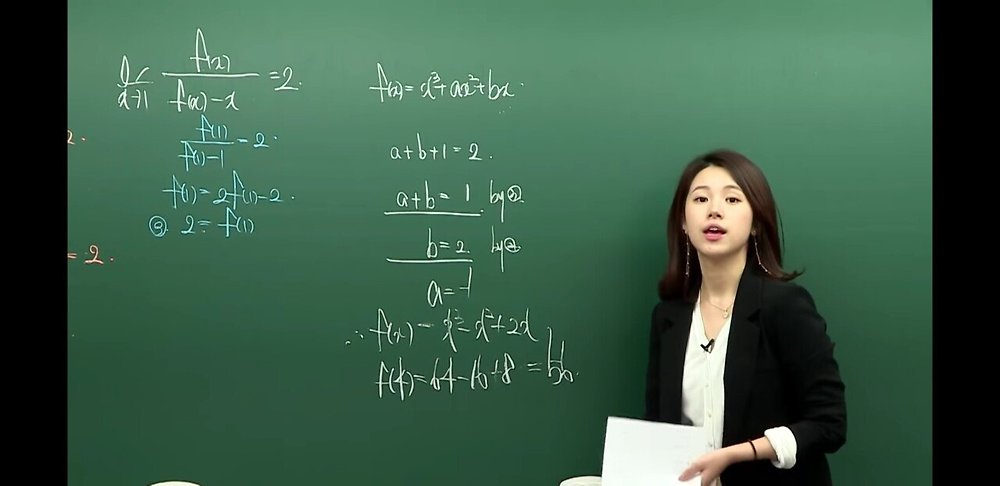 2.
= 2.
lim x→1 f(x)/(f(x)-x) = 2.
f(1)/(f(1)-1) = 2.
f(1) = 2f(1)-2.
③ 2 = f(1)
f(x) = x³+ax²+bx.
a+b+1 = 2.
a+b = 1. by③.
b = 2. by②.
a = -1
∴ f(x) = x³-x²+2x
f(4) = 64-16+8 = 56.